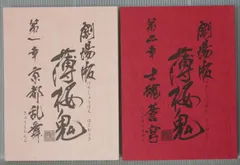 劇場版
薄桜鬼
第一章 京都乱舞
劇場版
薄桜鬼
第二章 士魂蒼穹